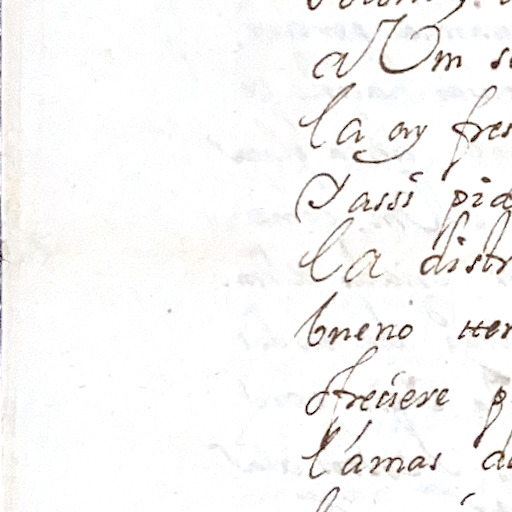 a Vm s
la ay fres
Y assi pid
la distr
bueno
ofreciere p
lamas d